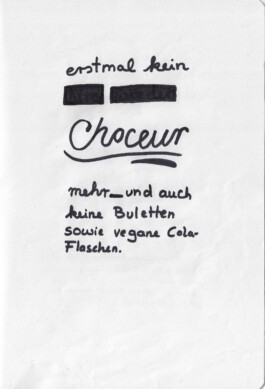 erstmal kein
Choceur
mehr_und auch
keine Buletten
sowie vegane Cola-
Flaschen.